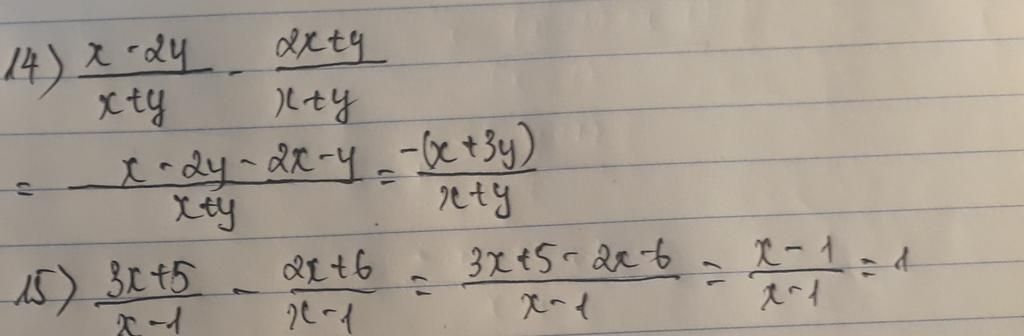 14) \frac{x-2y}{x+y} - \frac{2x+y}{x+y}
= \frac{x-2y-2x-y}{x+y} = \frac{-(x+3y)}{x+y}
15) \frac{3x+5}{x-1} - \frac{2x+6}{x-1} = \frac{3x+5-2x-6}{x-1} = \frac{x-1}{x-1} = 1